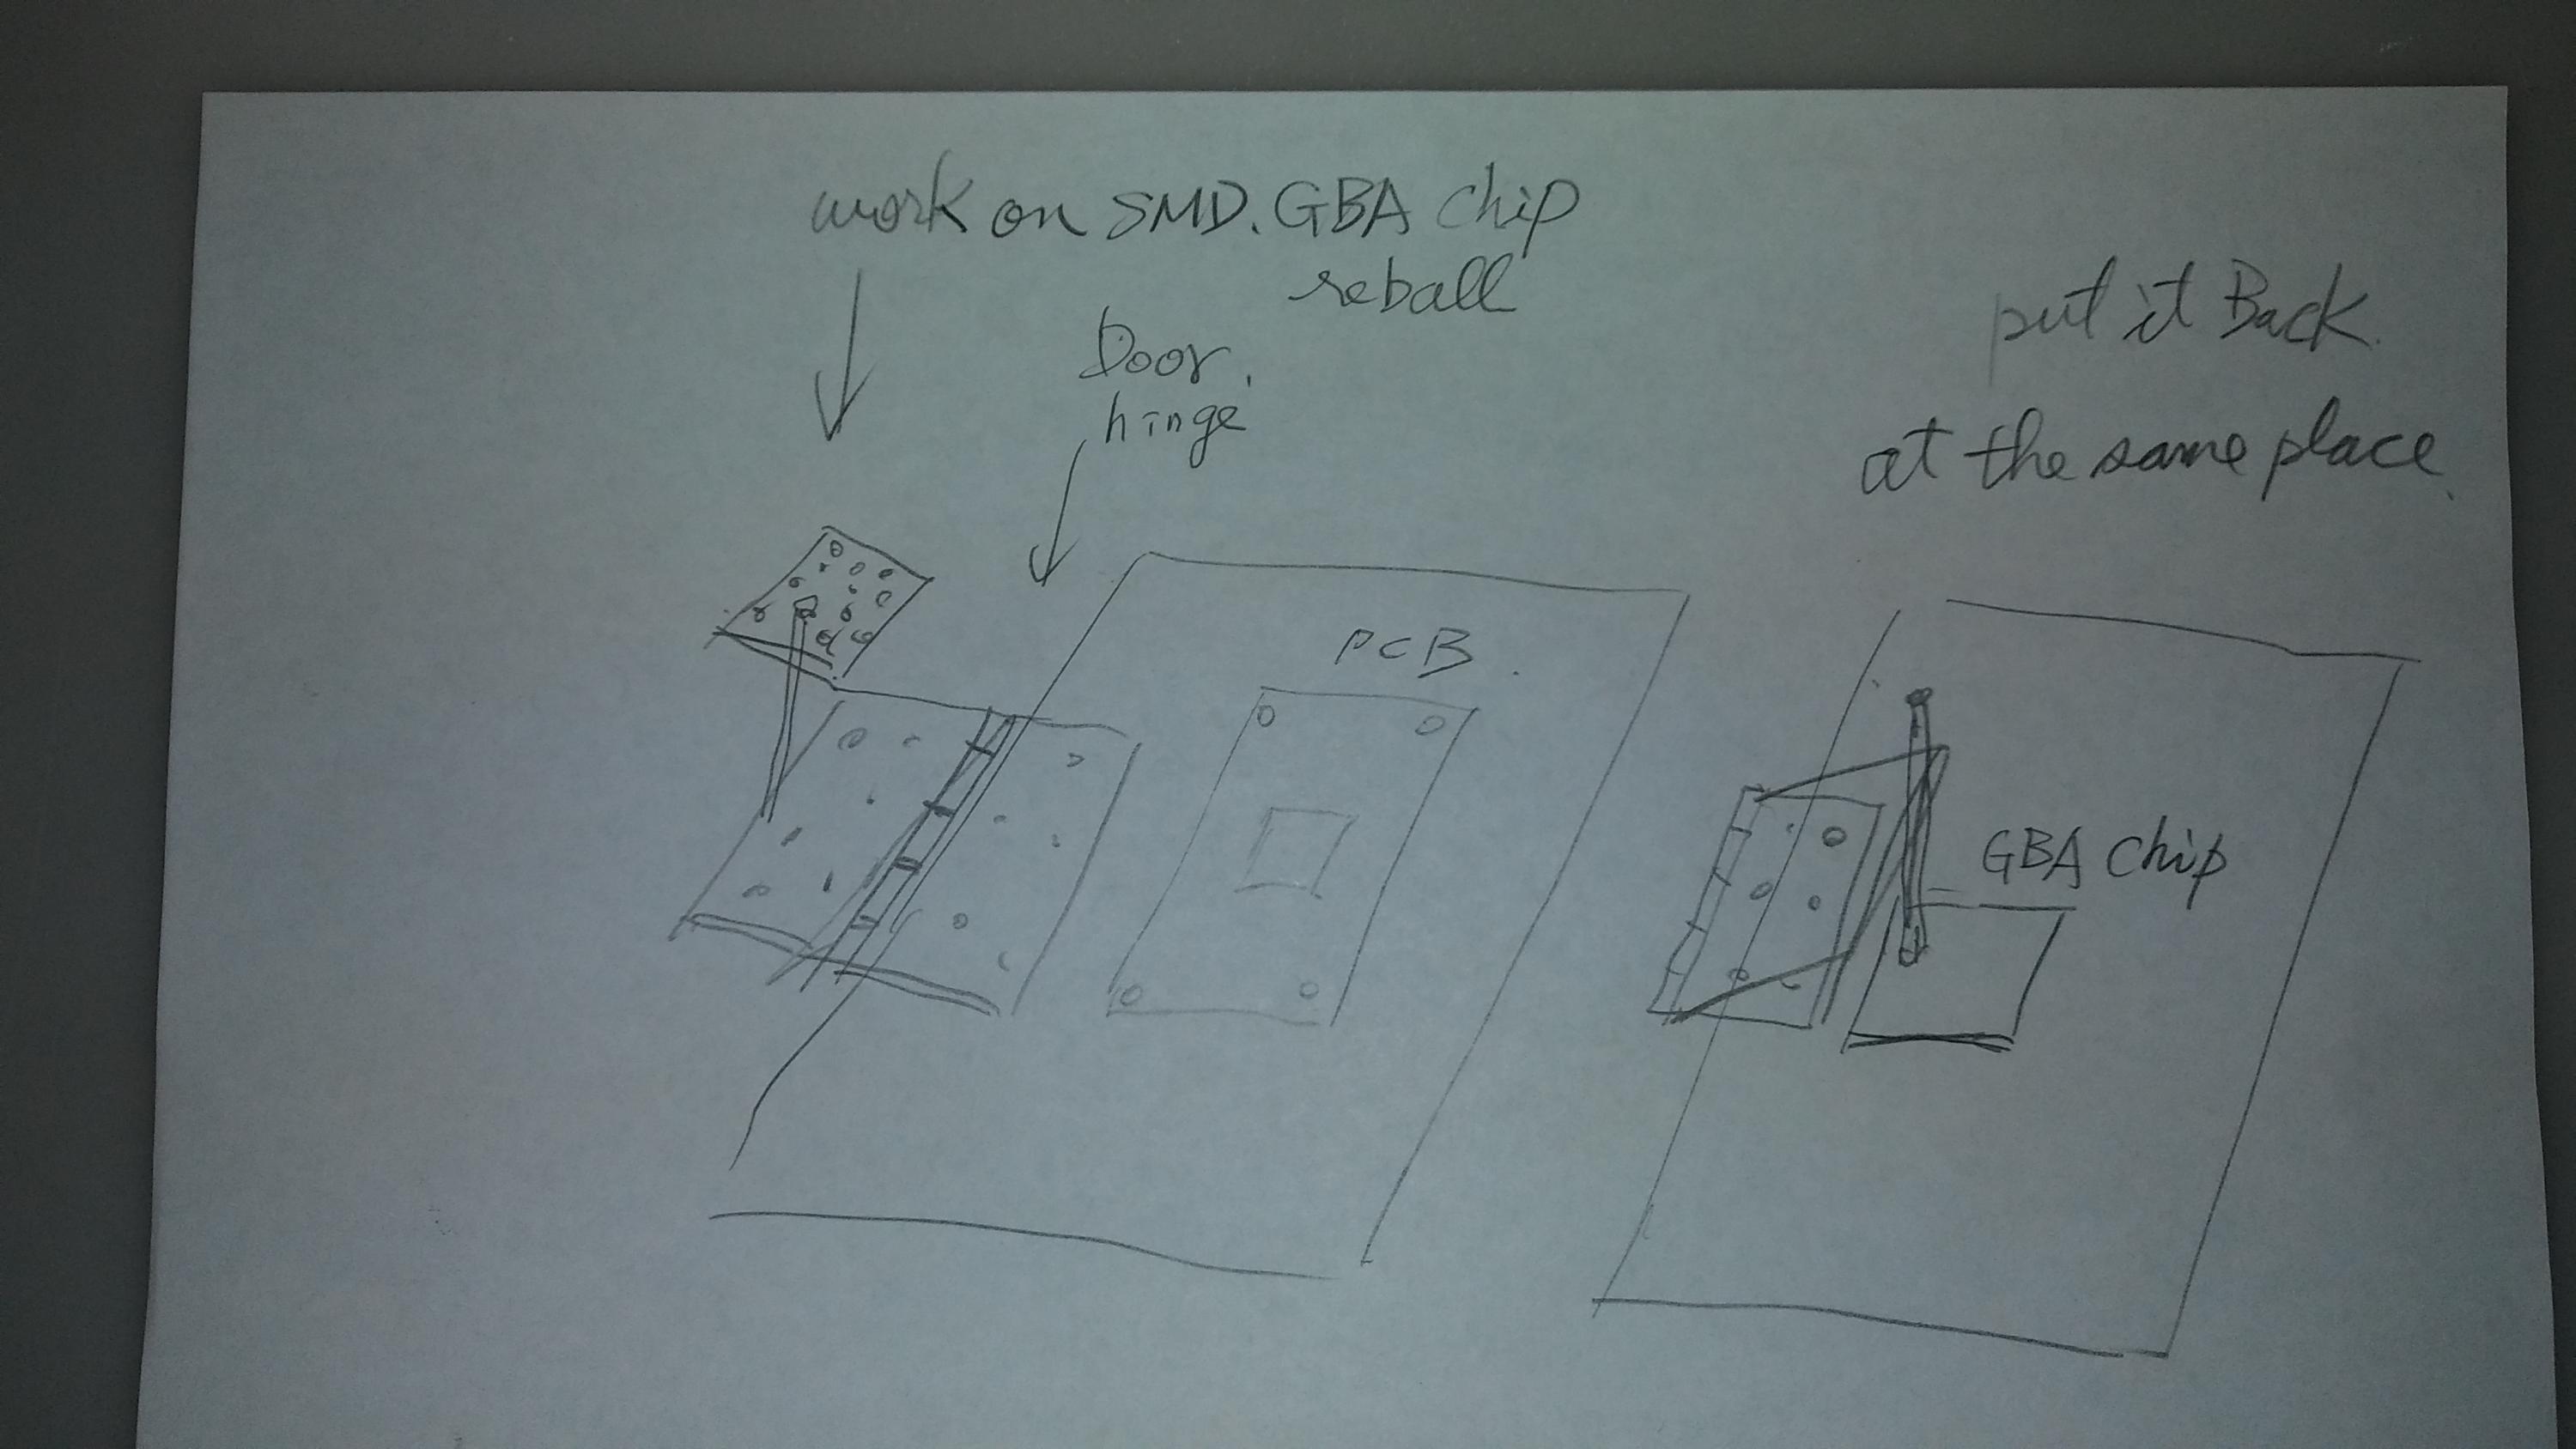 work on SMD. GBA chip
reball
Door.
hinge
put it Back.
at the same place.
PCB.
GBA chip